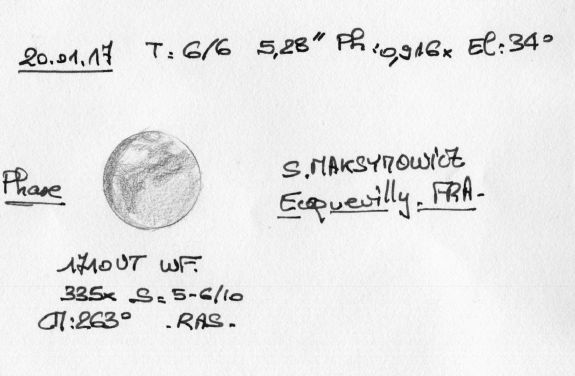 20.01.17 T: 6/6 5,28" Ph: 0,916x El: 34°
Phase
S. MAKSYMOWICZ
Ecquevilly. FRA-
1710UT WF.
335x S= 5-6/10
CM: 263° .RAS.